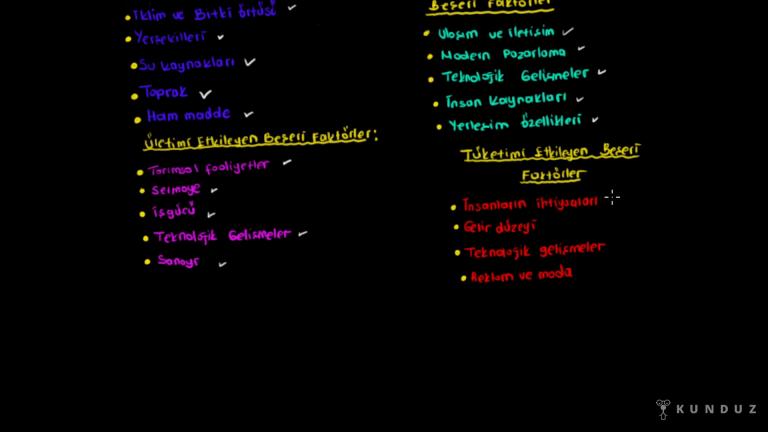 İklim ve Bitki örtüsü
Yerşekilleri
Su kaynakları
Toprak
Ham madde
Üretimi Etkileyen Beşeri Faktörler:
Tarımsal faaliyetler
Sermaye
işgücü
Teknolojik Gelişmeler
Sanayi
Beşeri Faktörler
Ulaşım ve iletişim
Modern Pazarlama
Teknolojik Gelişmeler
İnsan Kaynakları
Yerleşim özellikleri
Tüketimi Etkileyen Beşeri
Faktörler
İnsanların ihtiyaçları
Gelir düzeyi
Teknolojik gelişmeler
Reklam ve moda
KUNDUZ